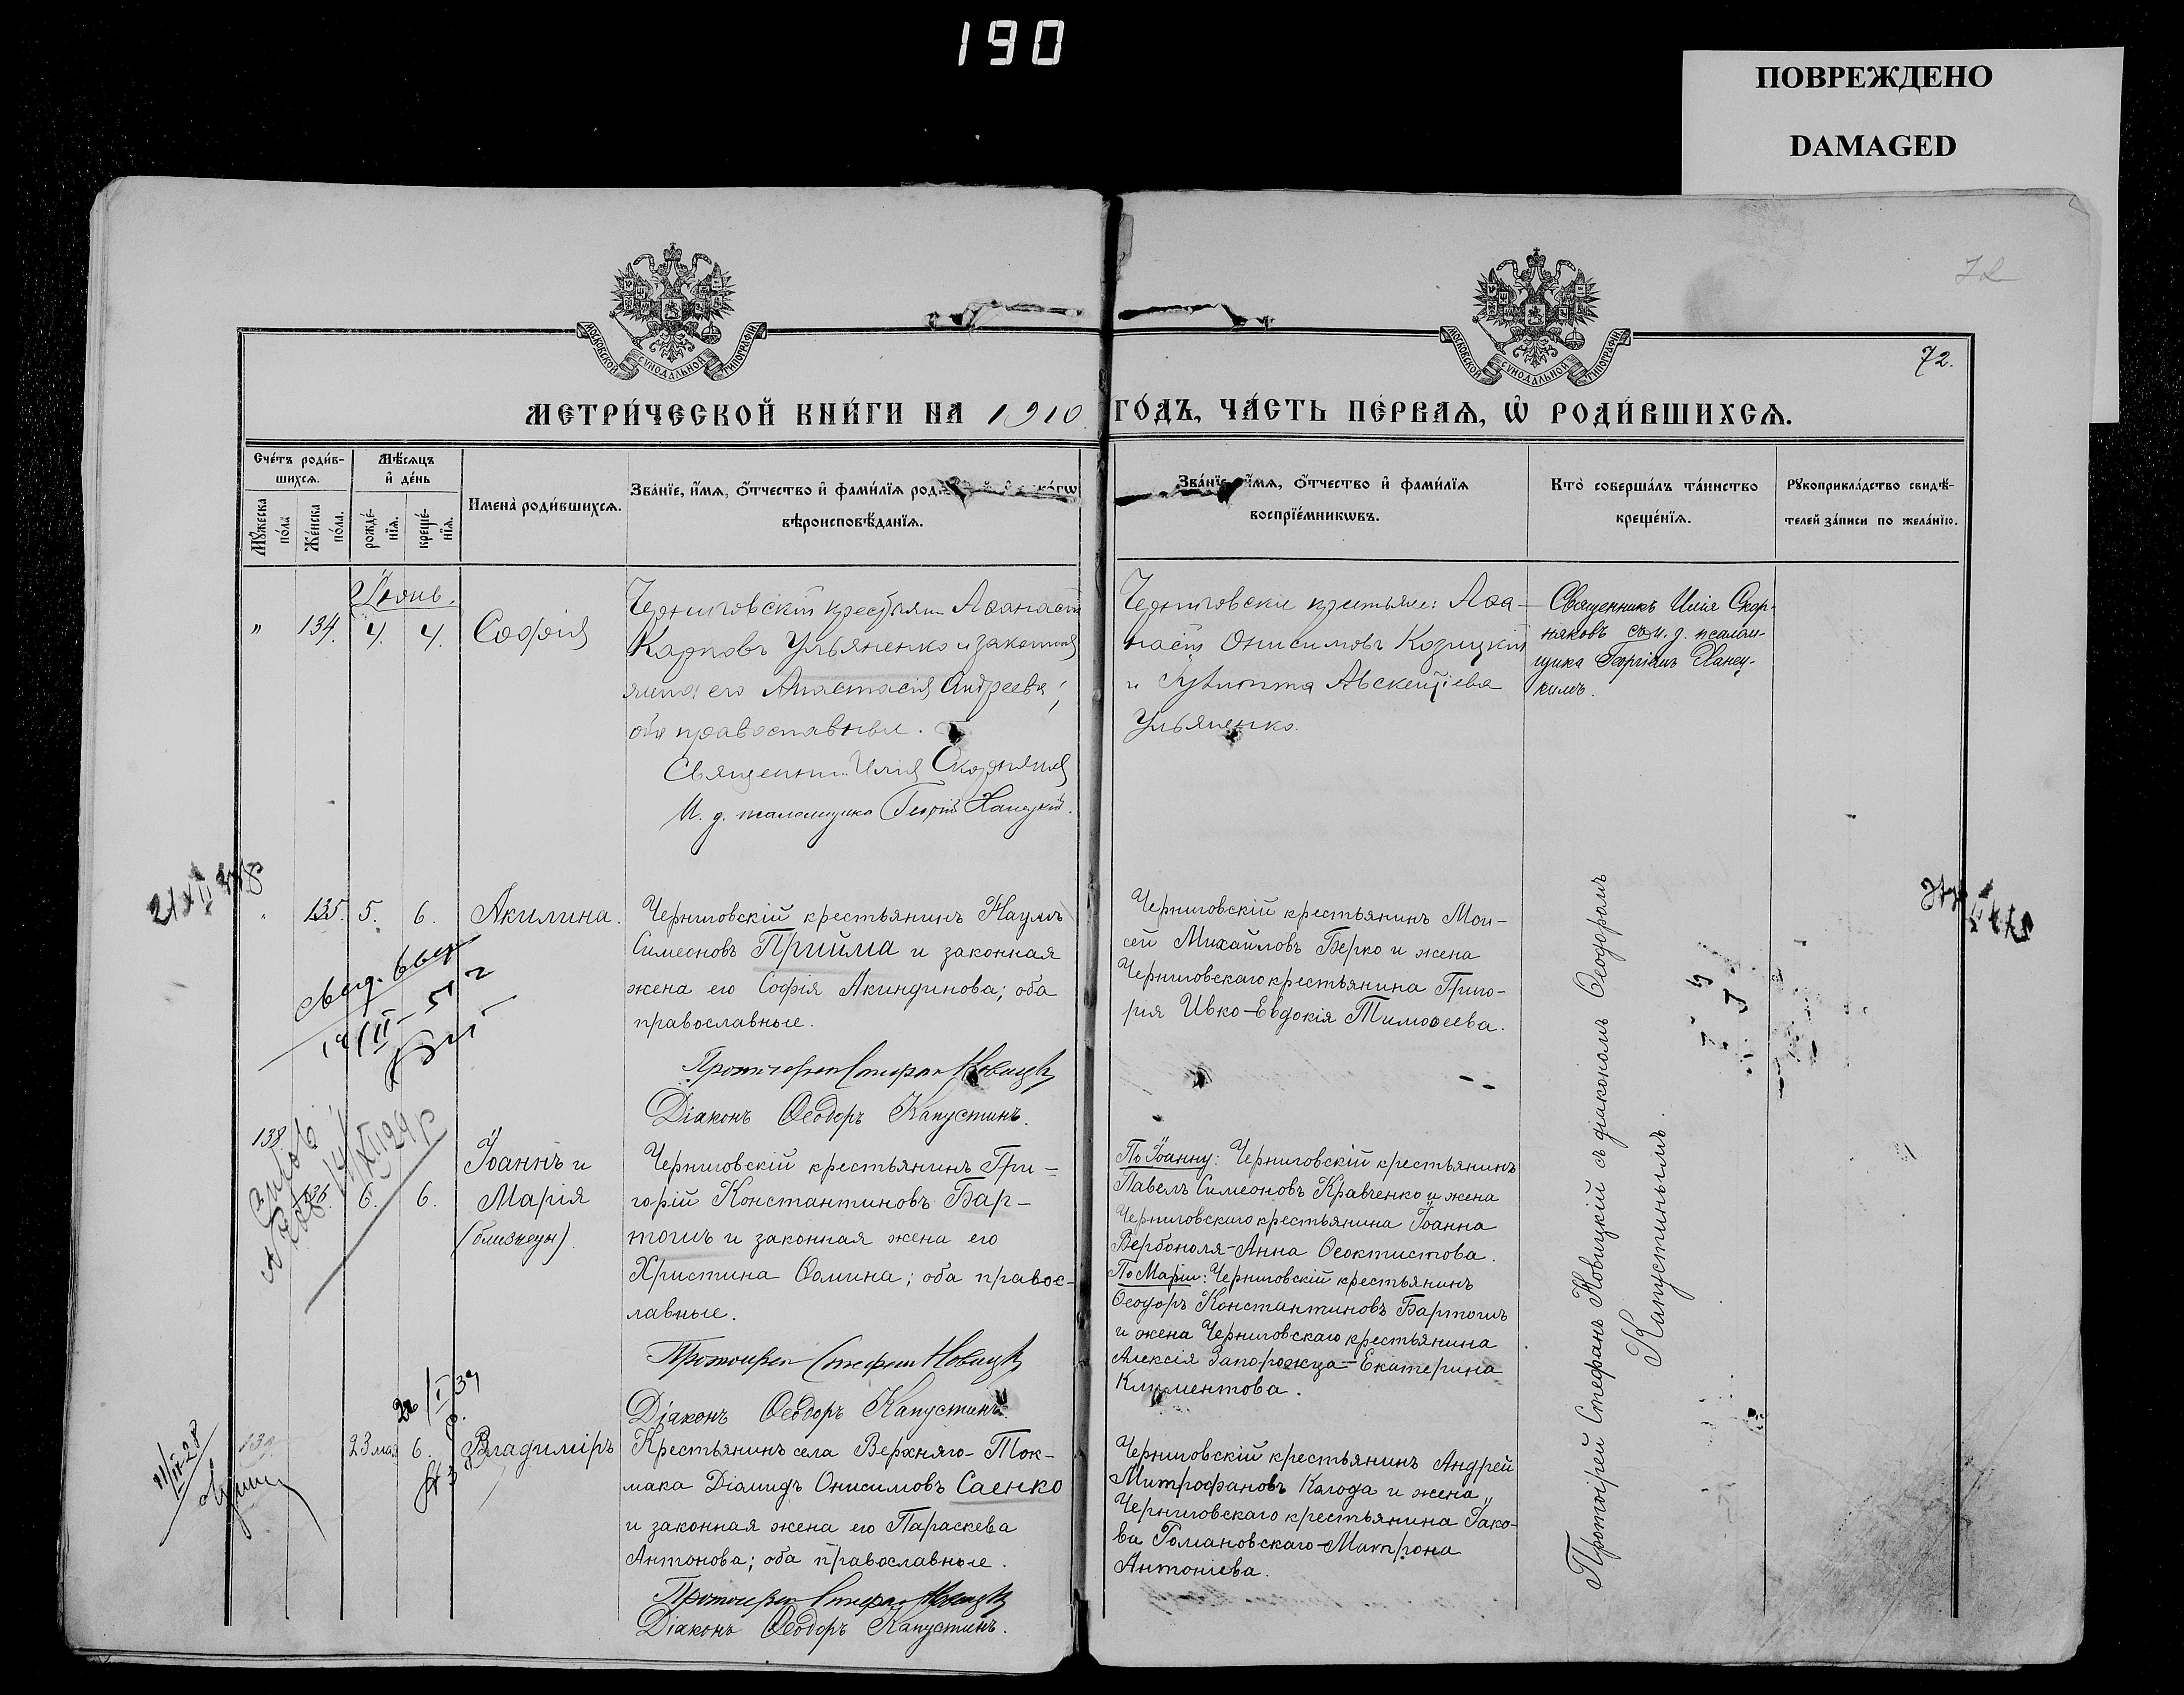 190
ПОВРЕЖДЕНО
DAMAGED
72
72.
МОСКОВСКОЙ СѴНОДАЛЬНОЙ ТИПОГРАФІИ
МОСКОВСКОЙ СѴНОДАЛЬНОЙ ТИПОГРАФІИ
МЕТРИ́ЧЕСКОЙ КНИ́ГИ НА 1910 ГО́ДЪ, ЧА́СТЬ ПЕ́РВАѦ, Ѡ҆ РОДИ́ВШИХСѦ.
Сче́тъ роди́в-
шихсѧ.
Мꙋ́жеска
по́ла
Же́нска
по́ла.
Мѣ́сѧцъ
и҆ де́нь
рожде́-
нїѧ.
креще́-
нїѧ.
Имена̀ роди́вшихсѧ.
Зва́нїе, и҆́мѧ, ѻ҆́тчество и҆ фами́лїѧ род
вѣроисповѣ́данїѧ.
Зва́нїе, и҆́мѧ, ѻ҆́тчество и҆ фами́лїѧ
воспрїе́мникѡвъ.
Кто̀ соверша́лъ та́инство
креще́нїѧ.
Рꙋкоприкла́дство свидѣ́-
телей за́писи по жела́нїю.
Іюнь.
" 134. 4. 4. Софія
Черниговскій крестьян. Аѳанасій
Карповъ Ульяненко и законная
жена его Анастасія Андреева;
оба православные.
Священник Илія Скорняков
И. д. псаломщика Георгій Ханецкій.
Черниговскіе крестьяне: Аѳа-
насій Онисимовъ Козицкій
и Авксентіева
Ульяненко.
Священникъ Илія Скор-
няковъ съ и. д. псалом-
щика Георгіемъ Ханец-
кимъ.
135. 5. 6. Акилина.
Черниговскій крестьянинъ Наумъ
Симеоновъ Прийма и законная
жена его Софія Акиндинова; оба
православные.
Протоіерей Стефан Новицкій
Діаконъ Ѳеодоръ Капустинъ.
Черниговскій крестьянинъ Мои-
сей Михайловъ Берко и жена
Черниговскаго крестьянина Григо-
рія Ивко-Евдокія Тимоѳеева.
Протоіерей Стефанъ Новицкій съ діакономъ Ѳеодоромъ
Капустинымъ.
138
136. 6. 6.
Іоаннъ и
Марія
(близнецы).
Черниговскій крестьянинъ Гри-
горій Константиновъ Бар-
тошъ и законная жена его
Христина Ѳомина; оба правос-
лавные.
Протоіерей Стефан Новицкій
Діаконъ Ѳеодоръ Капустинъ.
По Іоанну: Черниговскій крестьянинъ
Павелъ Симеоновъ Кравченко и жена
Черниговскаго крестьянина Іоанна
Вербополя-Анна Ѳеоктистова.
По Маріи: Черниговскій крестьянинъ
Ѳеодоръ Константиновъ Бартошъ
и жена Черниговскаго крестьянина
Алексія Запорожца-Екатерина
Климентова.
139. 23 мая 6. Владиміръ
Крестьянинъ села Верхняго-Ток-
мака Діамидъ Онисимовъ Саенко
и законная жена его Параскева
Антонова; оба православные.
Протоіерей Стефан Новицкій
Діаконъ Ѳеодоръ Капустинъ.
Черниговскій крестьянинъ Андрей
Митрофановъ Калода и жена
Черниговскаго крестьянина Іако-
ва Романовскаго-Матрона
Антоніева.